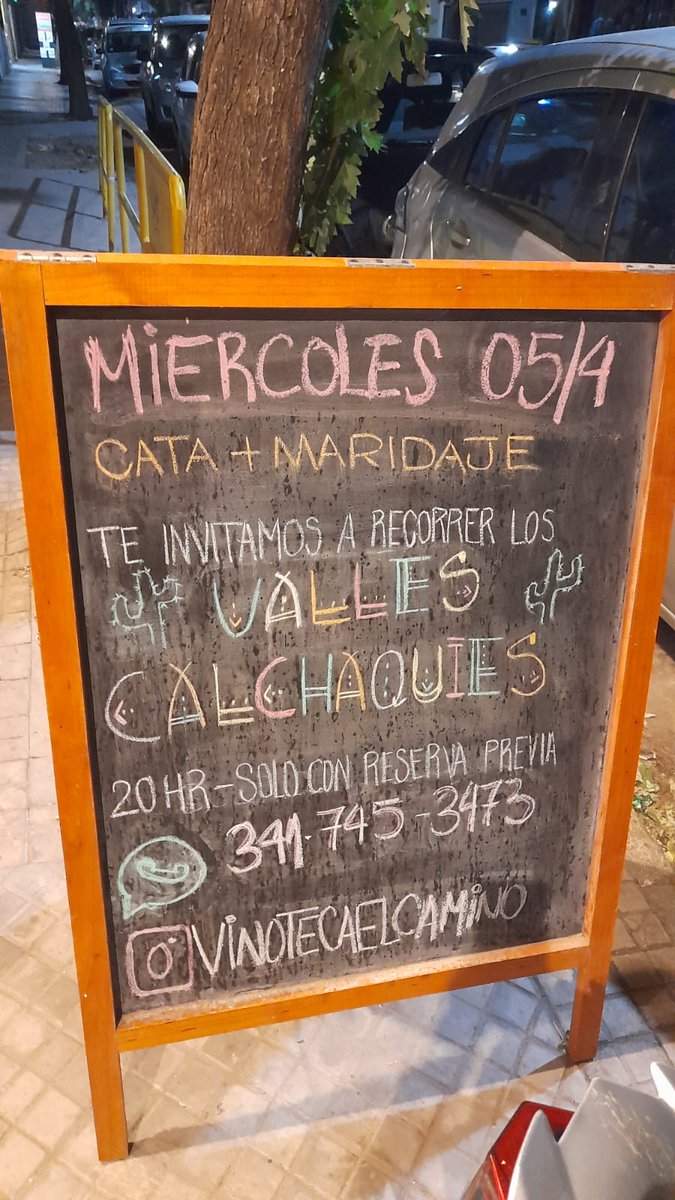 MiÉRCOLES 05/4
CATA + MARIDAJE
TE INVITAMOS A RECORRER LOS
VALLES
CALCHAQUIES
20HR-SOLO CON RESERVA PREVIA
341·745-3473
VINOTECAELCAMiNO